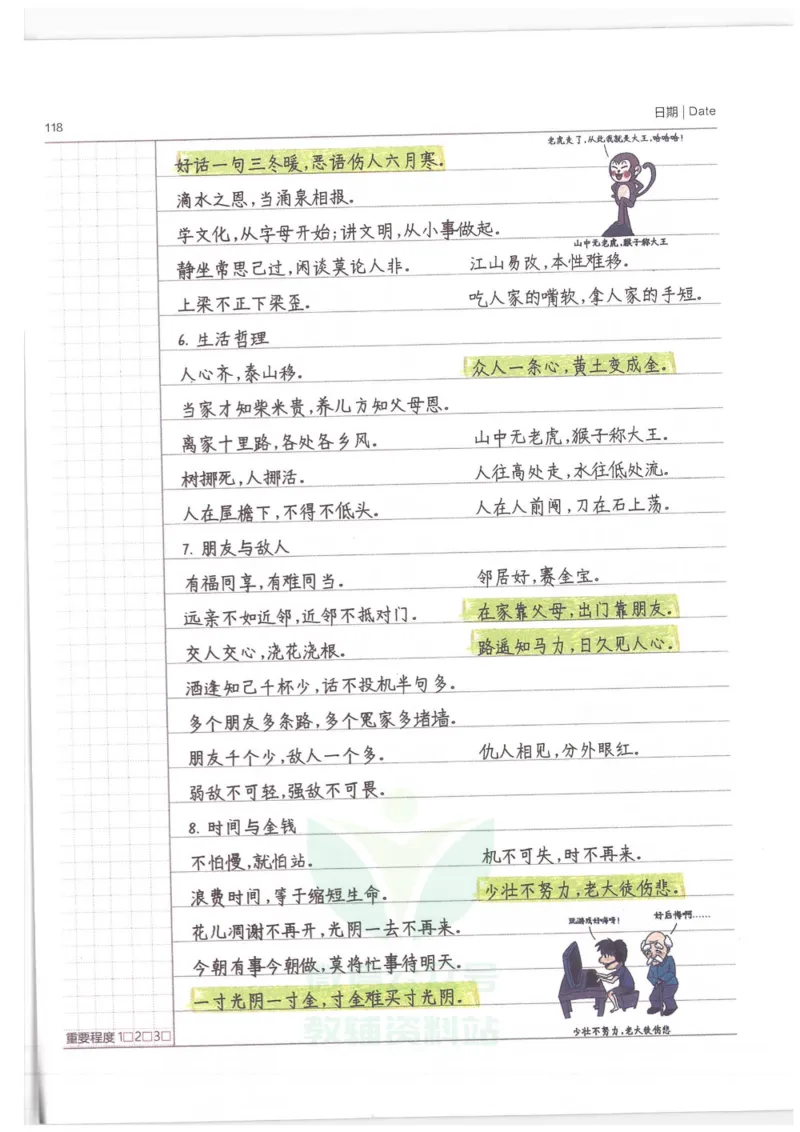 118
日期 | Date
好话一句三冬暖,恶语伤人六月寒。
老虎走了,从此我就是大王,哈哈哈!
滴水之恩,当涌泉相报。
学文化,从字母开始;讲文明,从小事做起。
山中无老虎,猴子称大王
静坐常思己过,闲谈莫论人非。 江山易改,本性难移。
上梁不正下梁歪。 吃人家的嘴软,拿人家的手短。
6. 生活哲理
人心齐,泰山移。 众人一条心,黄土变成金。
当家才知柴米贵,养儿方知父母恩。
离家十里路,各处各乡风。 山中无老虎,猴子称大王。
树挪死,人挪活。 人往高处走,水往低处流。
人在屋檐下,不得不低头。 人在人前闯,刀在石上荡。
7. 朋友与敌人
有福同享,有难同当。 邻居好,赛金宝。
远亲不如近邻,近邻不抵对门。 在家靠父母,出门靠朋友。
交人交心,浇花浇根。 路遥知马力,日久见人心。
酒逢知己千杯少,话不投机半句多。
多个朋友多条路,多个冤家多堵墙。
朋友千个少,敌人一个多。 仇人相见,分外眼红。
弱敌不可轻,强敌不可畏。
8. 时间与金钱
不怕慢,就怕站。 机不可失,时不再来。
浪费时间,等于缩短生命。 少壮不努力,老大徒伤悲。
花儿凋谢不再开,光阴一去不再来。
玩游戏好嗨呀!
好后悔啊……
今朝有事今朝做,莫将忙事待明天。
一寸光阴一寸金,寸金难买寸光阴。
少壮不努力,老大徒伤悲
重要程度 1□2□3□
教辅资料站